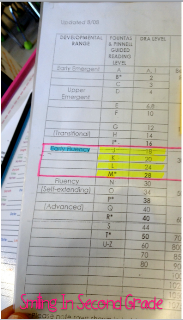 Updated 8/08
DEVELOPMENTAL RANGE FOUNTAS & PINNELL GUIDED READING LEVEL DRA LEVEL
Early Emergent A A, 1
B* 2
C 3
Upper Emergent D 4
E 6,8
F 10
G 12
(Transitional) H 14
I* 16
Early Fluency J 18
K 20
L 24
M* 28
Fluency N 30
(Self-extending) O 34
P* 38
(Advanced) Q 40
R* 40
S 44
T* 50
U-Z 60
70
80
Smiling In Second Grade